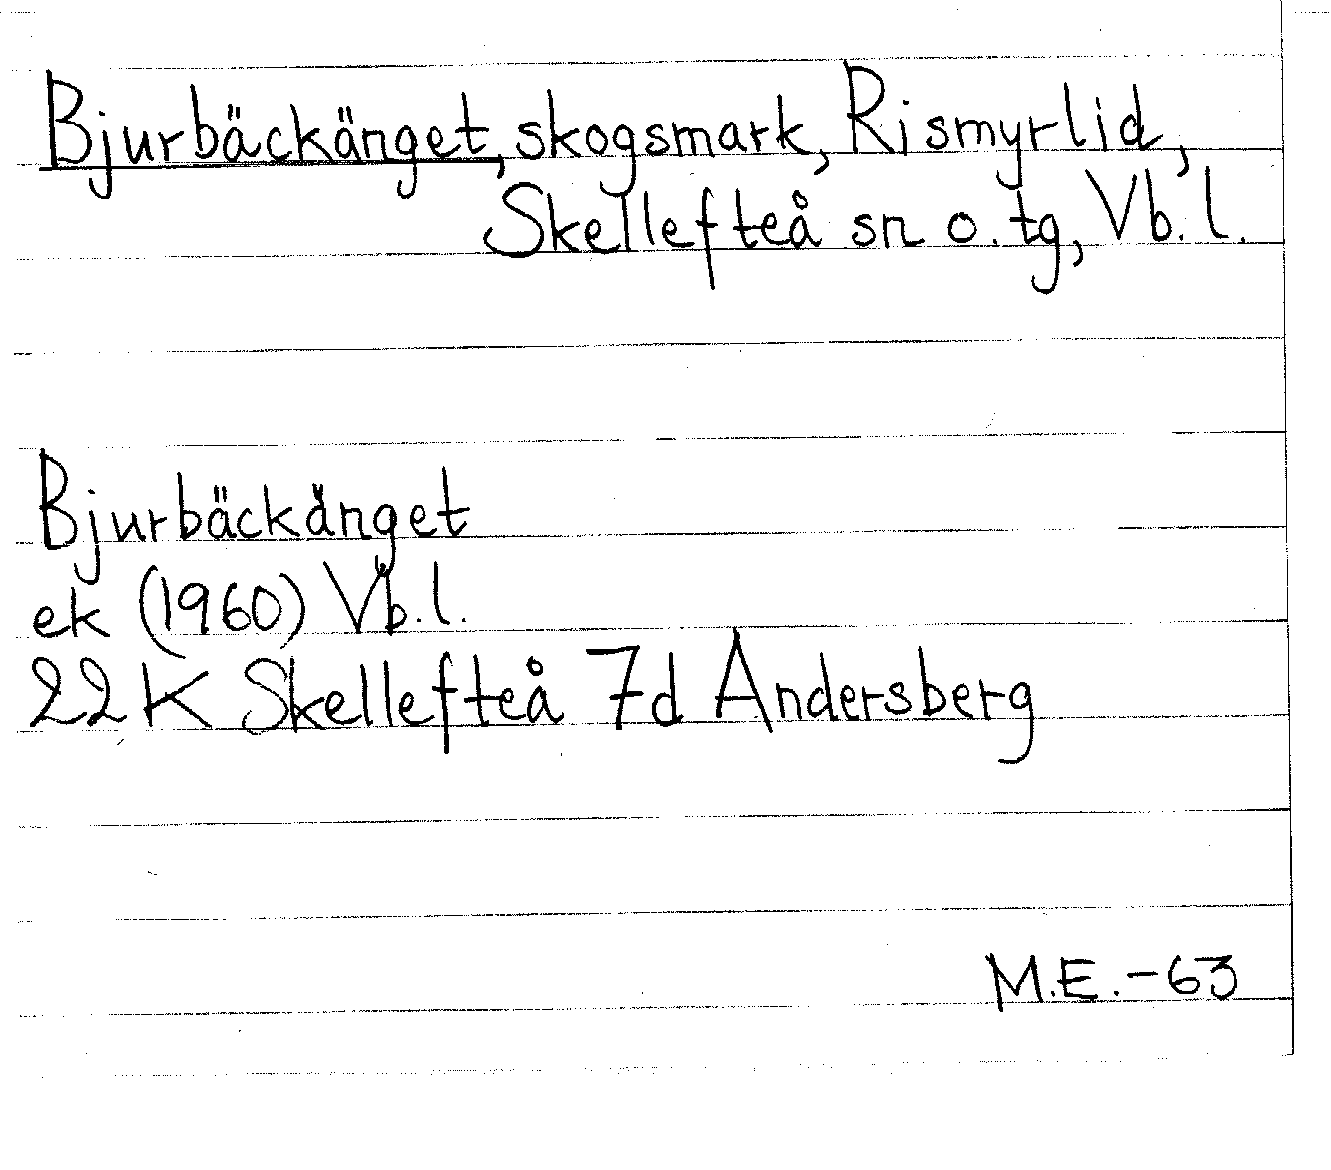 Bjurbäckänget, skogsmark, Rismyrlid,
Skellefteå sn o. tg, Vb. l.
Bjurbäckänget
ek (1960) Vb. l.
22 K Skellefteå 7d Andersberg
M.E. -63